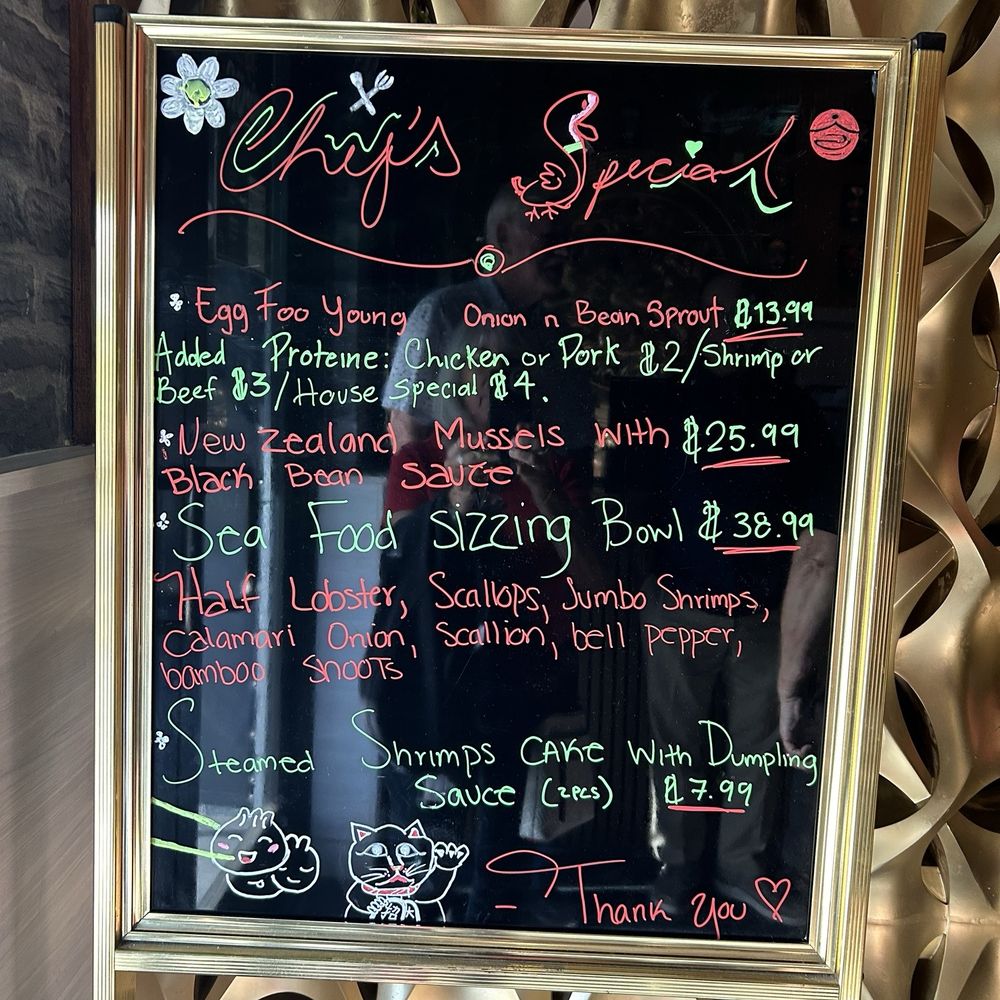 Chef's Special
Egg Foo Young Onion n Bean Sprout $13.99
Added Proteine: Chicken or Pork $2/Shrimp or
Beef $3/House Special $4.
New Zealand Mussels With $25.99
Black Bean Sauce
Sea Food Sizzing Bowl $38.99
Half Lobster, Scallops, Jumbo Shrimps,
Calamari Onion, Scallion, bell pepper,
bamboo shoots
Steamed Shrimps CAKE With Dumpling
Sauce (2pcs) $7.99
- Thank you